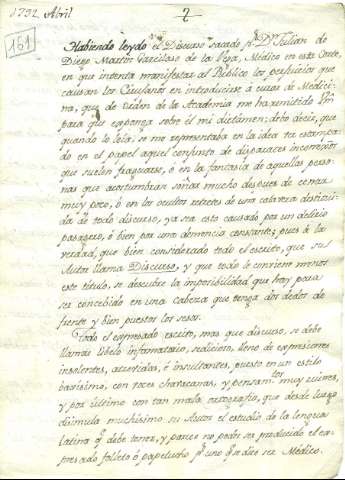 1792 Abril
2
151
Habiendo leydo el Discurso sacado pr. Dn. Julian de
Diego Martin Garcilaso de la Vega, Médico en esta Corte,
en que intenta manifestar al Público los perjuicios que
causan los Cirujanos en introducirse á curas de Medici-
na, que de orden de la Academia me ha remitido Vm
para que exponga sobre él mi dictamen: debo decir, que
quando lo leía, se me representaba en la idea ver estampa-
do en el papel aquel conjunto de disparates inconexos
que suelen fraguarse, ó en la fantasía de aquellas perso-
nas que acostumbran soñar mucho despues de cenar
muy poco, ó en los ocultos retretes de una calavera destitui-
da de todo discurso, ya sea esto causado por un delirio
pasagero, ó bien por una demencia constante; pues á la
verdad, que bien considerado todo el escrito, que su
Autor llama Discurso, y que todo le conviene menos
este título, se descubre la imposibilidad que hay para
ser concebido en una cabeza que tenga dos dedos de
frente y bien puestos los sesos.
Todo el expresado escrito, mas que discurso, se debe
llamar libelo infamatorio, sedicioso, lleno de expresiones
insolentes, atrevidas, é insultantes, puesto en un estilo
baxisimo, con voces chavacanas, y pensam.tos muy ruines,
y por último con tan mala ortografia, que desde luego
disimula muchisimo su Autor el estudio de la lengua
latina q.e debe tener, y parece no poder ser producido el ex-
presado folleto ó papelucho pr. uno q.e á dias ser Médico.